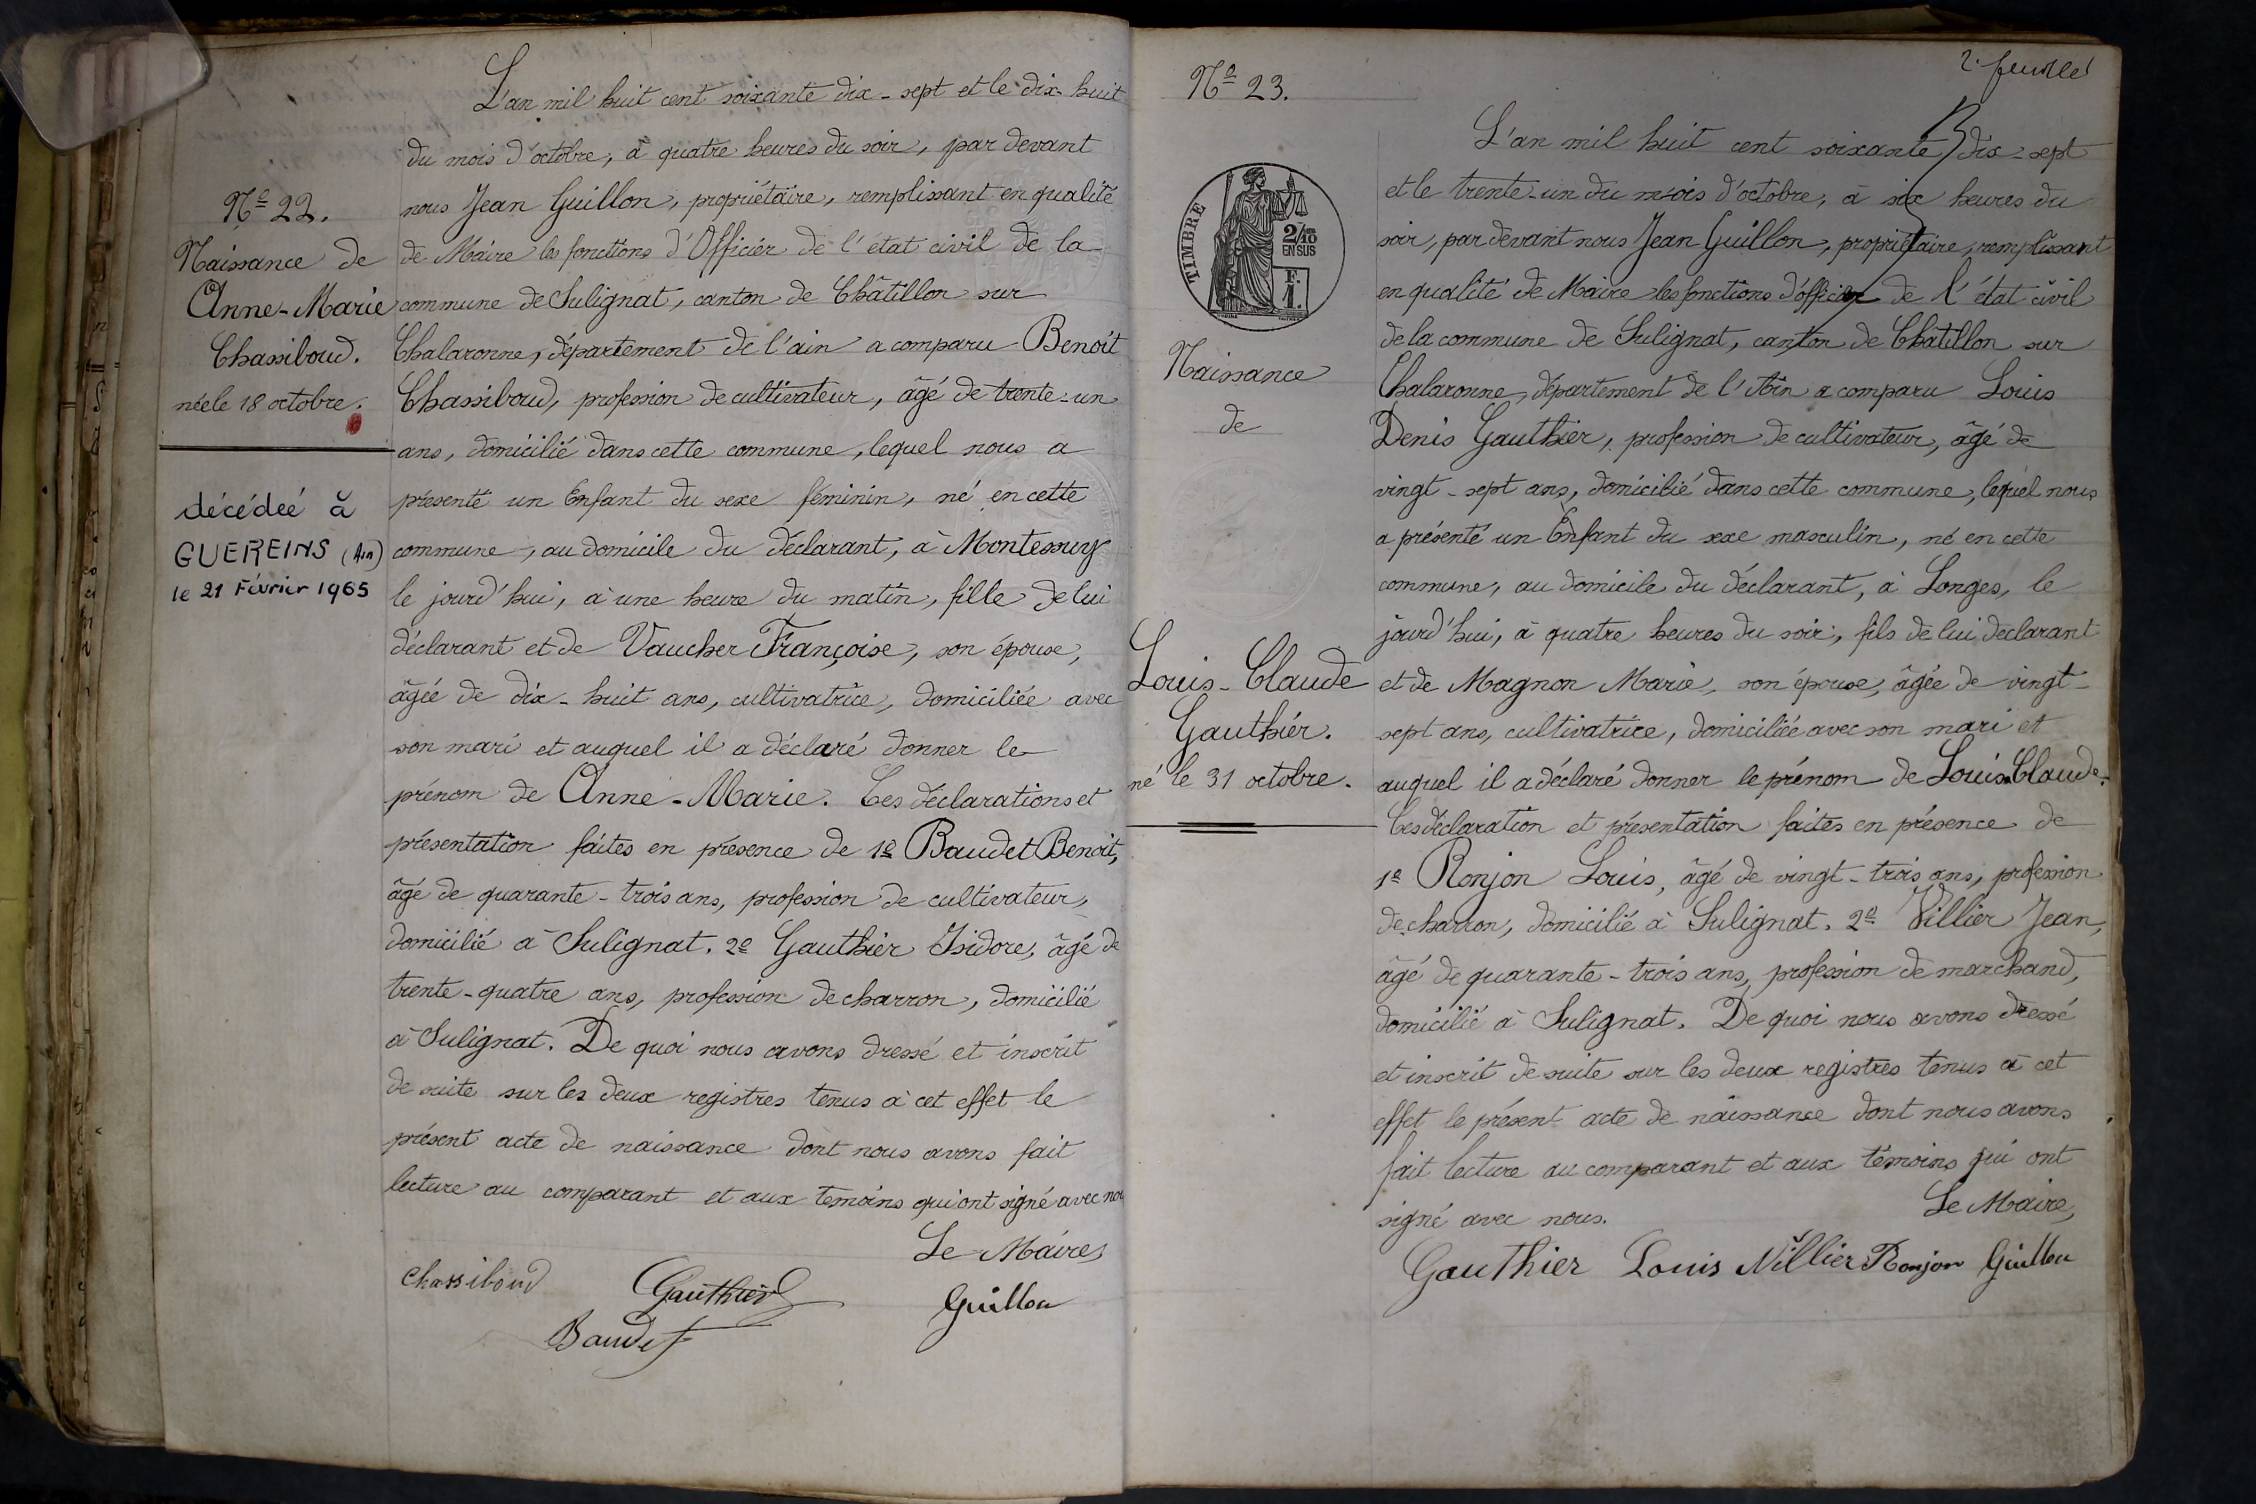 L'an mil huit cent soixante dix-sept et le dix-huit
du mois d'octobre, à quatre heures du soir, par devant
nous Jean Guillon, propriétaire, remplissant en qualité
de Maire les fonctions d'Officier de l'état civil de la
commune de Sulignat, canton de Châtillon sur
Chalaronne, département de l'ain a comparu Benoit
Chassiboud, profession de cultivateur, âgé de trente-un
ans, domicilié dans cette commune, lequel nous a
présenté un Enfant du sexe féminin, né en cette
commune, au domicile du déclarant, à Montessuy
le jourd'hui, à une heure du matin, fille de lui
déclarant et de Vaucher Françoise, son épouse,
âgée de dix-huit ans, cultivatrice, domiciliée avec
son mari et auquel il a déclaré donner le
prénom de Anne-Marie. Ces déclarations et
présentation faites en présence de 1º Baudet Benoit,
âgé de quarante-trois ans, profession de cultivateur,
domicilié à Sulignat. 2º Gauthier Isidore, âgé de
trente-quatre ans, profession de charron, domicilié
à Sulignat. De quoi nous avons dressé et inscrit
de suite sur les deux registres tenus à cet effet le
présent acte de naissance dont nous avons fait
lecture au comparant et aux temoins qui ont signé avec nou
Le Maire,
Chassiboud Gauthier Guillon
Baudet
Nº 22.
Naissance de
Anne-Marie
Chassiboud.
née le 18 octobre.
décédeé à
GUEREINS (Ain)
le 21 Février 1965
2e feuille
Nº 23.
TIMBRE
2/10
EN SUS
F.
1.
Naissance
de
Louis-Claude
Gauthier.
né le 31 octobre.
L'an mil huit cent soixante dix-sept
et le trente-un du mois d'octobre, à six heures du
soir, par devant nous Jean Guillon, propriétaire, remplissant
en qualité de Maire les fonctions d'officier de l'état civil
de la commune de Sulignat, canton de Châtillon sur
Chalaronne, département de l'Ain a comparu Louis
Denis Gauthier, profession de cultivateur, âgé de
vingt-sept ans, domicilié dans cette commune, lequel nous
a présenté un Enfant du sexe masculin, né en cette
commune, au domicile du déclarant, à Longes, le
jourd'hui, à quatre heures du soir, fils de lui déclarant
et de Magnon Marie, son épouse, âgée de vingt-
sept ans, cultivatrice, domiciliée avec son mari et
auquel il a déclaré donner le prénom de Louis Claude.
Ces déclaration et présentation faites en présence de
1º Ronjon Louis, âgé de vingt-trois ans, profession
de charron, domicilié à Sulignat. 2º Villier Jean,
âgé de quarante-trois ans, profession de marchand,
domicilié à Sulignat. De quoi nous avons dressé
et inscrit de suite sur les deux registres tenus à cet
effet le présent acte de naissance dont nous avons
fait lecture au comparant et aux témoins qui ont
signé avec nous. Le Maire,
Gauthier Louis Villier Ronjon Guillon